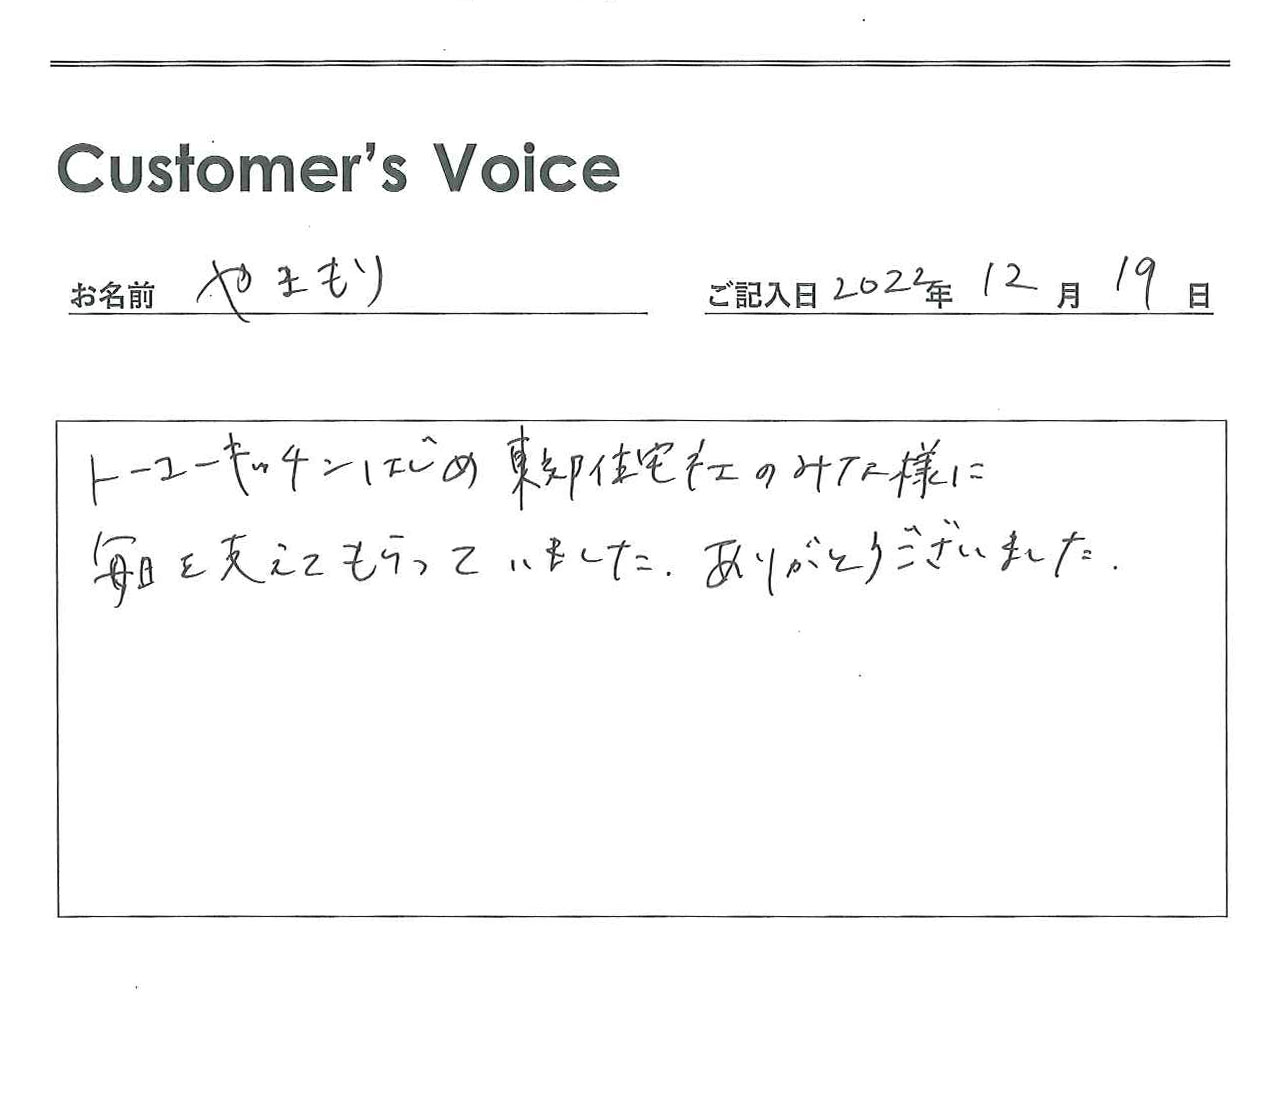 Customer's Voice
お名前 やまもり
ご記入日 2022年 12月 19日
トーコーキッチンはじめ 東郊住宅社のみなさ様に
毎日を支えてもらっていました. ありがとうございました.